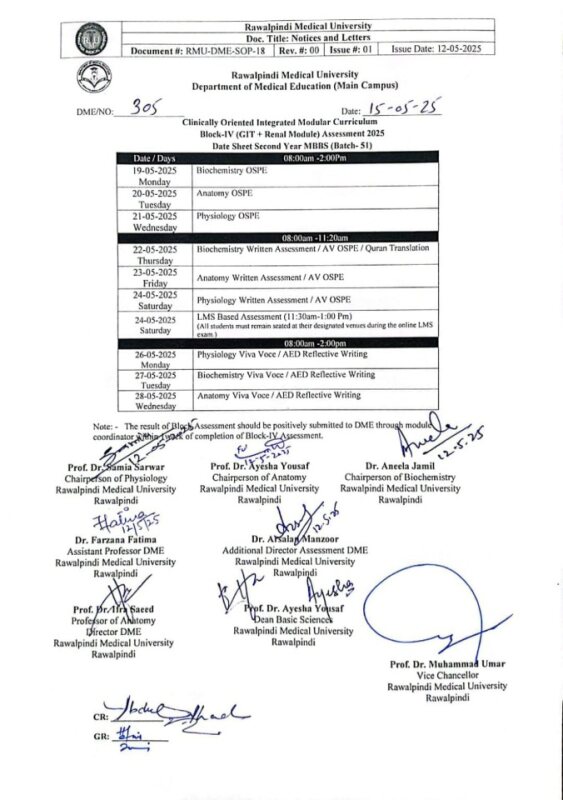 Rawalpindi Medical University
Doc. Title: Notices and Letters
Document #: RMU-DME-SOP-18 Rev. #: 00 Issue #: 01 Issue Date: 12-05-2025
Rawalpindi Medical University
Department of Medical Education (Main Campus)
DME/NO: 305 Date: 15-05-25
Clinically Oriented Integrated Modular Curriculum
Block-IV (GIT + Renal Module) Assessment 2025
Date Sheet Second Year MBBS (Batch- 51)
Date / Days 08:00am -2:00Pm
19-05-2025 Biochemistry OSPE
Monday
20-05-2025 Anatomy OSPE
Tuesday
21-05-2025 Physiology OSPE
Wednesday
08:00am -11:20am
22-05-2025 Biochemistry Written Assessment / AV OSPE / Quran Translation
Thursday
23-05-2025 Anatomy Written Assessment / AV OSPE
Friday
24-05-2025 Physiology Written Assessment / AV OSPE
Saturday
24-05-2025 LMS Based Assessment (11:30am-1:00 Pm)
Saturday (All students must remain seated at their designated venues during the online LMS
exam.)
08:00am -2:00pm
26-05-2025 Physiology Viva Voce / AED Reflective Writing
Monday
27-05-2025 Biochemistry Viva Voce / AED Reflective Writing
Tuesday
28-05-2025 Anatomy Viva Voce / AED Reflective Writing
Wednesday
Note: - The result of Block Assessment should be positively submitted to DME through module
coordinator within 1 week of completion of Block-IV Assessment.
12-05 12-5-2025 Aneela 12-5-25
Prof. Dr. Samia Sarwar Prof. Dr. Ayesha Yousaf Dr. Aneela Jamil
Chairperson of Physiology Chairperson of Anatomy Chairperson of Biochemistry
Rawalpindi Medical University Rawalpindi Medical University Rawalpindi Medical University
Rawalpindi Rawalpindi Rawalpindi
Fatima 12/5/25 12-5-25
Dr. Farzana Fatima Dr. Arsalan Manzoor
Assistant Professor DME Additional Director Assessment DME
Rawalpindi Medical University Rawalpindi Medical University
Rawalpindi Rawalpindi
Ayesha
Prof. Dr. Ifra Saeed Prof. Dr. Ayesha Yousaf
Professor of Anatomy Dean Basic Sciences
Director DME Rawalpindi Medical University
Rawalpindi Medical University Rawalpindi
Rawalpindi
Prof. Dr. Muhammad Umar
Vice Chancellor
Rawalpindi Medical University
Rawalpindi
CR: Abdul
GR: